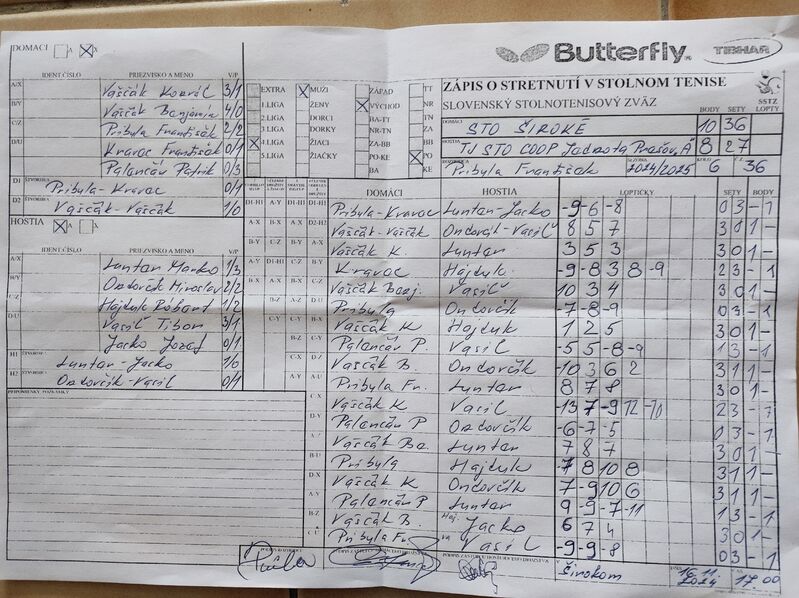 DOMÁCI A X
Butterfly
TIBHAR
IDENT.ČÍSLO PRIEZVISKO A MENO V/P
A/X Vaščák Kornél 3/1
B/Y Vaščák Benjamín 4/0
C/Z Pribula František 2/2
D/U Kravec František 0/1
Palančár Patrik 0/3
D1 ŠTVORHRA Pribula-Kravec 0/1
D2 ŠTVORHRA Vaščák-Vaščák 1/0
EXTRA MUŽI ZÁPAD TT
1.LIGA ŽENY VÝCHOD NR
2.LIGA DORCI BA-TT TN
3.LIGA DORKY NR-TN ZA
4.LIGA ŽIACI ZA-BB BB
5.LIGA ŽIAČKY PO-KE PO
BA KE
ZÁPIS O STRETNUTÍ V STOLNOM TENISE
SLOVENSKÝ STOLNOTENISOVÝ ZVÄZ
SSTZ
BODY SETY LOPTY
DOMÁCI STO ŠIROKÉ 10 36
HOSTIA TJ STO COOP Jednota Prešov, A 8 27
Pribula František SEZÓNA 2024/2025 KOLO 6 Č.Z. 36
HOSTIA X A
IDENT.ČÍSLO PRIEZVISKO A MENO V/P
A/X Luntar Marko 1/3
B/Y Ondovčík Miroslav 2/2
C/Z Hajduk Róbert 1/2
D/U Vasiľ Tibor 3/1
Jacko Jozef 0/1
H1 ŠTVORHRA Luntar-Jacko 1/0
H2 ŠTVORHRA Ondovčík-Vasiľ 0/1
PRIPOMIENKY, POZNÁMKY
DOMÁCI HOSTIA LOPTIČKY SETY BODY
Pribula-Kravec Luntar-Jacko -9 -6 -8 0 3 - 1
Vaščák-Vaščák Ondovčík-Vasiľ 8 5 7 3 0 1 -
Vaščák K. Luntar 3 5 3 3 0 1 -
Kravec Hajduk -9 -8 3 8 -9 2 3 - 1
Vaščák Benj. Vasiľ 10 3 4 3 0 1 -
Pribula Ondovčík -7 -8 -9 0 3 - 1
Vaščák K Hajduk 1 2 5 3 0 1 -
Palančár P. Vasiľ -5 5 -8 -9 1 3 - 1
Vaščák B. Ondovčík -10 3 6 2 3 1 1 -
Pribula Fr. Luntar 8 7 8 3 0 1 -
Vaščák K Vasiľ -13 7 -9 12 -10 2 3 - 1
Palančár P Ondovčík -6 -7 -5 0 3 - 1
Vaščák Be. Luntar 7 8 7 3 0 1 -
Pribula Hajduk -7 8 10 8 3 1 1 -
Vaščák K Ondovčík 7 -9 10 6 3 1 1 -
Palančár P Luntar 9 -9 -7 -11 1 3 - 1
Vaščák B. Jacko 6 7 4 3 0 1 -
Pribula Fr. Vasiľ -9 -9 -8 0 3 - 1
v Širokom 16.11 2024 17 00